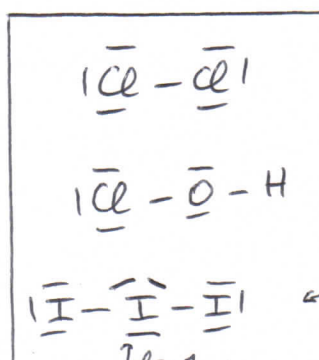 |Cl - Cl|
|Cl - O - H
|I - I - I|